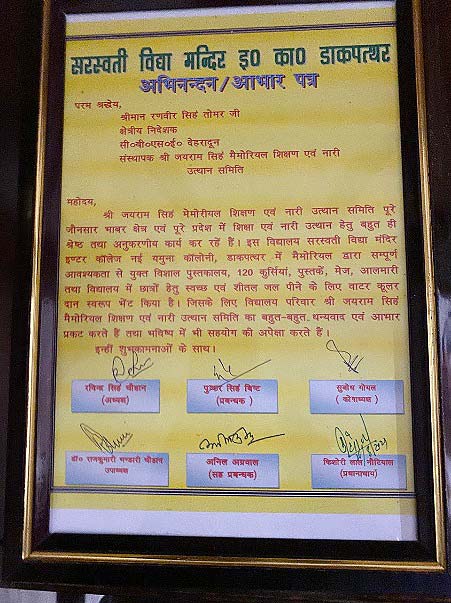 सरस्वती विद्या मन्दिर इ0 का0 डाकपत्थर
अभिनन्दन/आभार पत्र
परम श्रद्धेय,
श्रीमान रणवीर सिहं तोमर जी
क्षेत्रीय निदेशक
सी०बी०एस०ई० देहरादून
संस्थापक श्री जयराम सिहं मैमोरियल शिक्षण एवं नारी
उत्थान समिति
महोदय,
श्री जयराम सिहं मेमोरीयल शिक्षण एवं नारी उत्थान समिति पूरे
जौनसार भाबर क्षेत्र एवं पूरे प्रदेश में शिक्षा एवं नारी उत्थान हेतु बहुत ही
श्रेष्ठ तथा अनुकरणीय कार्य कर रहें हैं। इस विद्यालय सरस्वती विद्या मंदिर
इण्टर कॉलेज नई यमुना कॉलोनी, डाकपत्थर में मैमोरियल द्वारा सम्पूर्ण
आवश्यकता से युक्त विशाल पुस्तकालय, 120 कुर्सियां, पुस्तकें, मेज, आलमारी
तथा विद्यालय में छात्रों हेतु स्वच्छ एवं शीतल जल पीने के लिए वाटर कूलर
दान स्वरूप भेंट किया है। जिसके लिए विद्यालय परिवार श्री जयराम सिहं
मैमोरीयल शिक्षण एवं नारी उत्थान समिति का बहुत-बहुत धन्यवाद एवं आभार
प्रकट करते हैं तथा भविष्य में भी सहयोग की अपेक्षा करते हैं।
इन्हीं शुभकामनाओं के साथ।
रविन्द्र सिहं चौहान
(अध्यक्ष)
पुष्कर सिहं बिष्ट
(प्रबन्धक )
सुबोध गोयल
( कोषाध्यक्ष)
डॉ० राजकुमारी भण्डारी चौहान
उपाध्यक्ष
अनिल अग्रवाल
(सह प्रबन्धक)
किशोरी लाल नौटियाल
(प्रधानाचार्य)